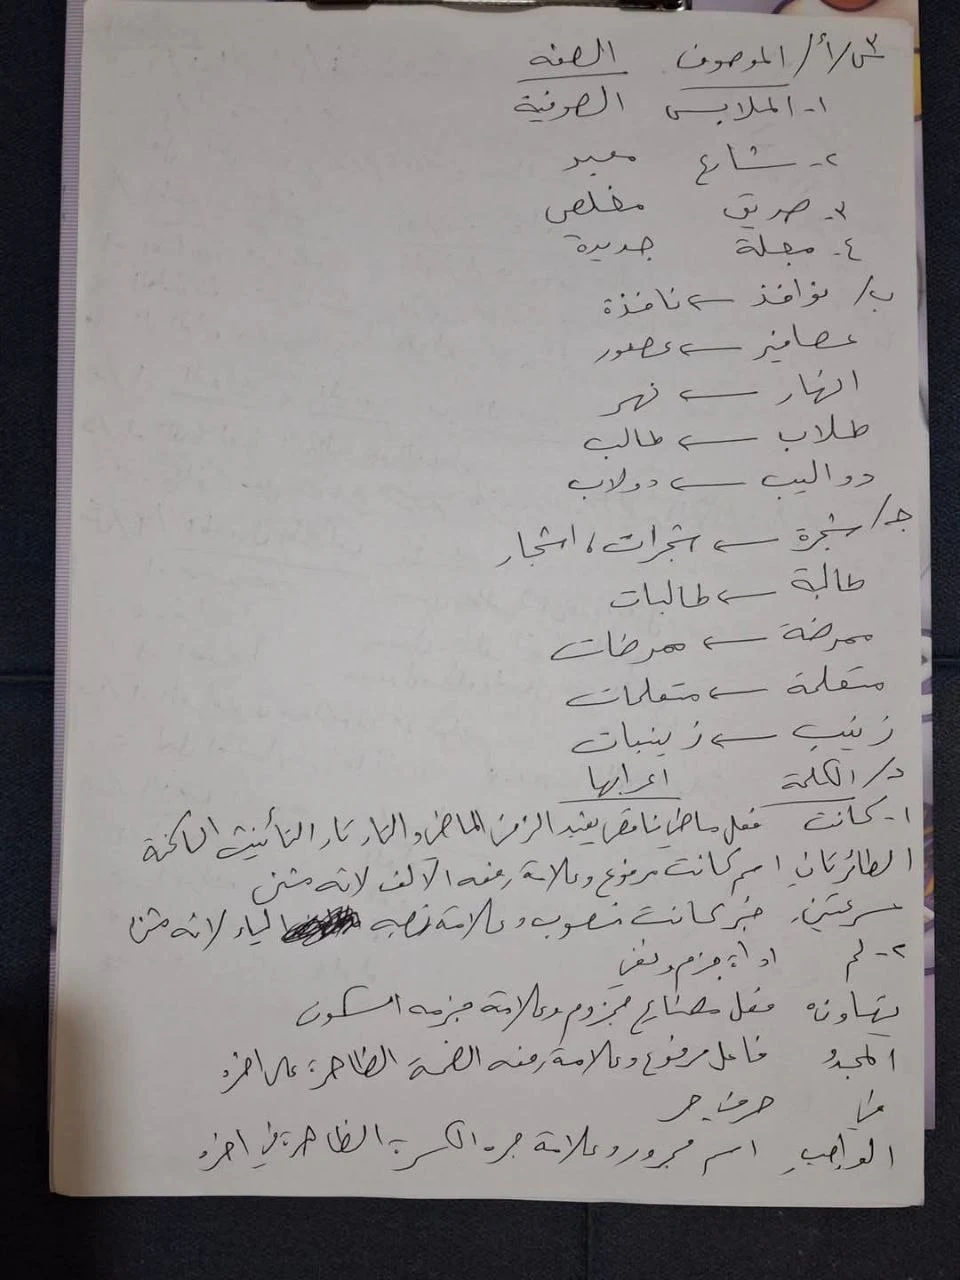 س٣/أ/ الموصوف الصفه
١- الملابس الصوفية
٢- شارع معبد
٣- صديق مخلص
٤- مجلة جديدة
ب/ نوافذ ← نافذة
عصافير ← عصفور
انهار ← نهر
طلاب ← طالب
دواليب ← دولاب
ج/ شجرة ← شجرات، اشجار
طالبة ← طالبات
ممرضة ← ممرضات
متعلمة ← متعلمات
زينب ← زينبات
د/ الكلمة اعرابها
١- كانت فعل ماضي ناقص يفيد الزمن الماضي والتاء تاء التأنيث الساكنة
الطائرتان اسم كانت مرفوع وعلامة رفعه الألف لانه مثنى
سرعتين خبر كانت منصوب وعلامة نصبه الياء لانه مثنى
٢- لم اداة جزم ونفي
يتهاون فعل مضارع مجزوم وعلامة جزمه السكون
المجدُ فاعل مرفوع وعلامة رفعه الضمة الظاهرة على اخره
في حرف جر
الواجبِ اسم مجرور وعلامة جره الكسرة الظاهرة في اخره